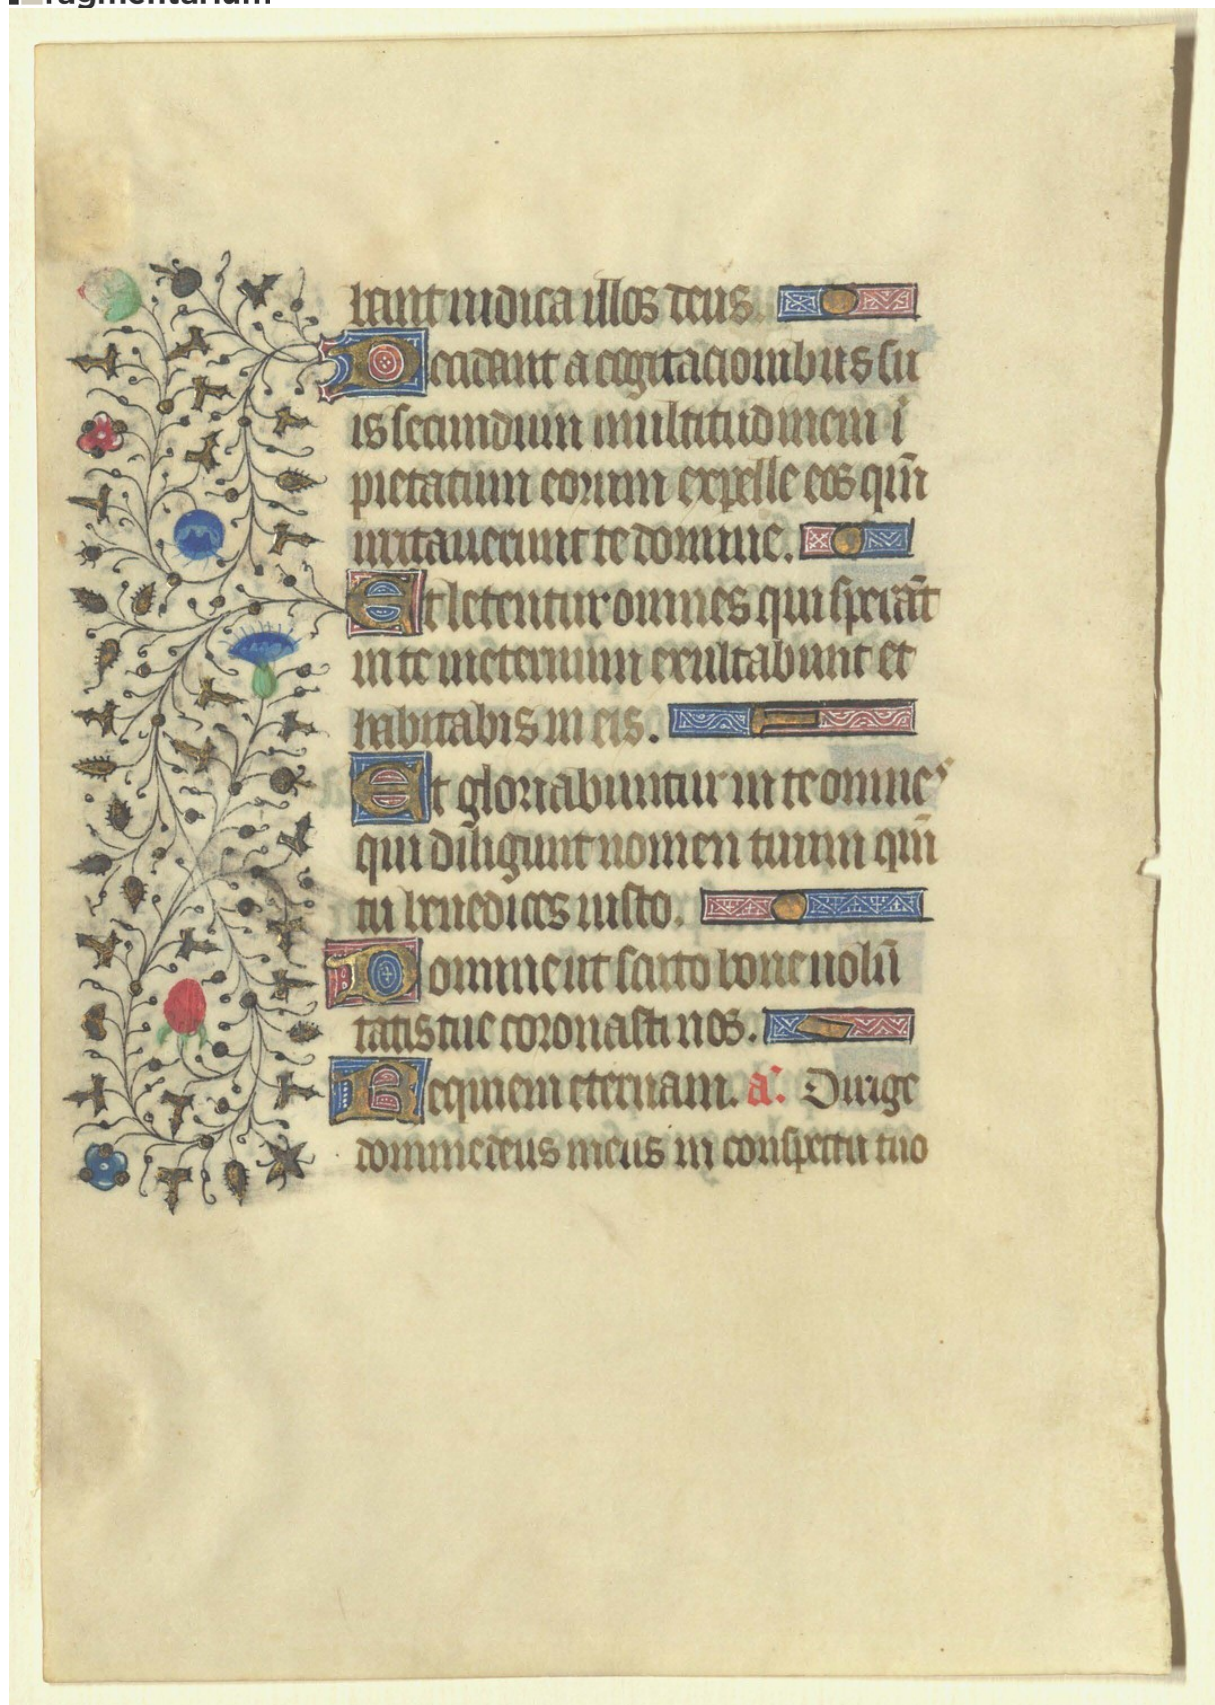 ragmentarium
bant iudica illos deus.
Decidant a cogitacionibus su
is secundum multitudinem ī
pietatum eorum expelle eos qm̄
irritauerunt te domine.
Et letentur omnes qui sperāt
in te in eternum exultabunt et
habitabis in eis.
Et gloriabuntur in te omnes
qui diligunt nomen tuum qm̄
tu benedices iusto.
Domine ut scuto bone uolū
tatis tue coronasti nos.
Requiem eternam. a. Dirige
domine deus meus in conspectu tuo